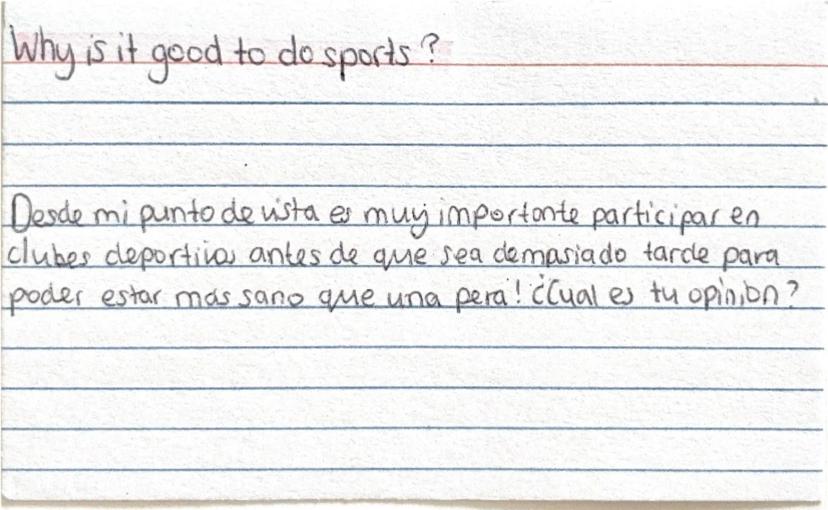 Why is it good to do sports?
Desde mi punto de vista es muy importante participar en
clubes deportivos antes de que sea demasiado tarde para
poder estar mas sano que una pera! ¿Cual es tu opinion?